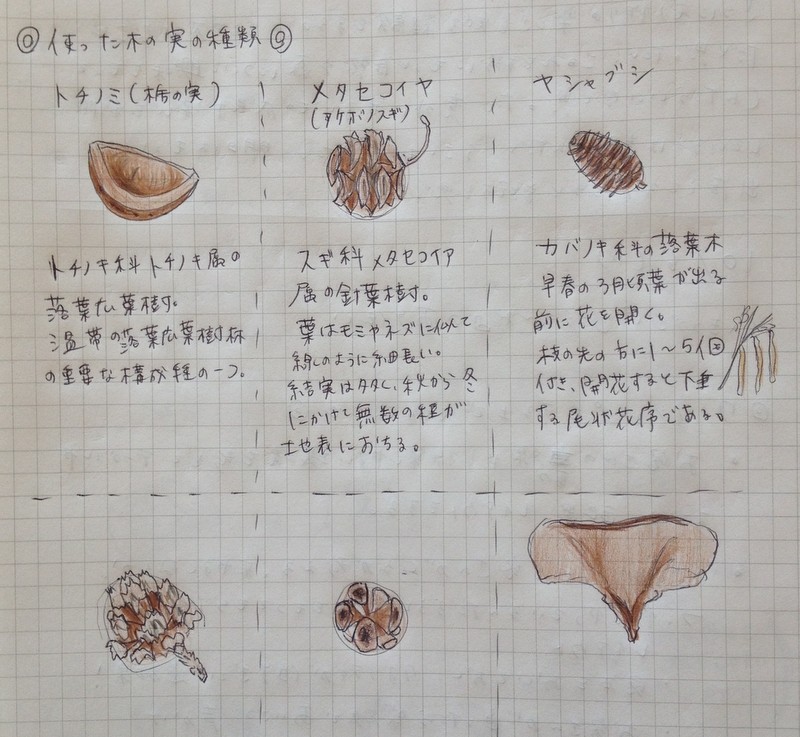 ◎使った木の実の種類◎
トチノミ(栃の実)
トチノキ科トチノキ属の
落葉広葉樹。
温帯の落葉広葉樹林
の重要な構成種の一つ。
メタセコイヤ
(アケボノスギ)
スギ科メタセコイア
属の針葉樹。
葉はモミやネズに似て
線のように細長い。
結実は多く、秋から冬
にかけて無数の種が
地表におちる。
ヤシャブシ
カバノキ科の落葉木
早春の3月頃葉が出る
前に花を開く。
枝の先の方に1~5個
付き、開花すると下垂
する尾状花序である。